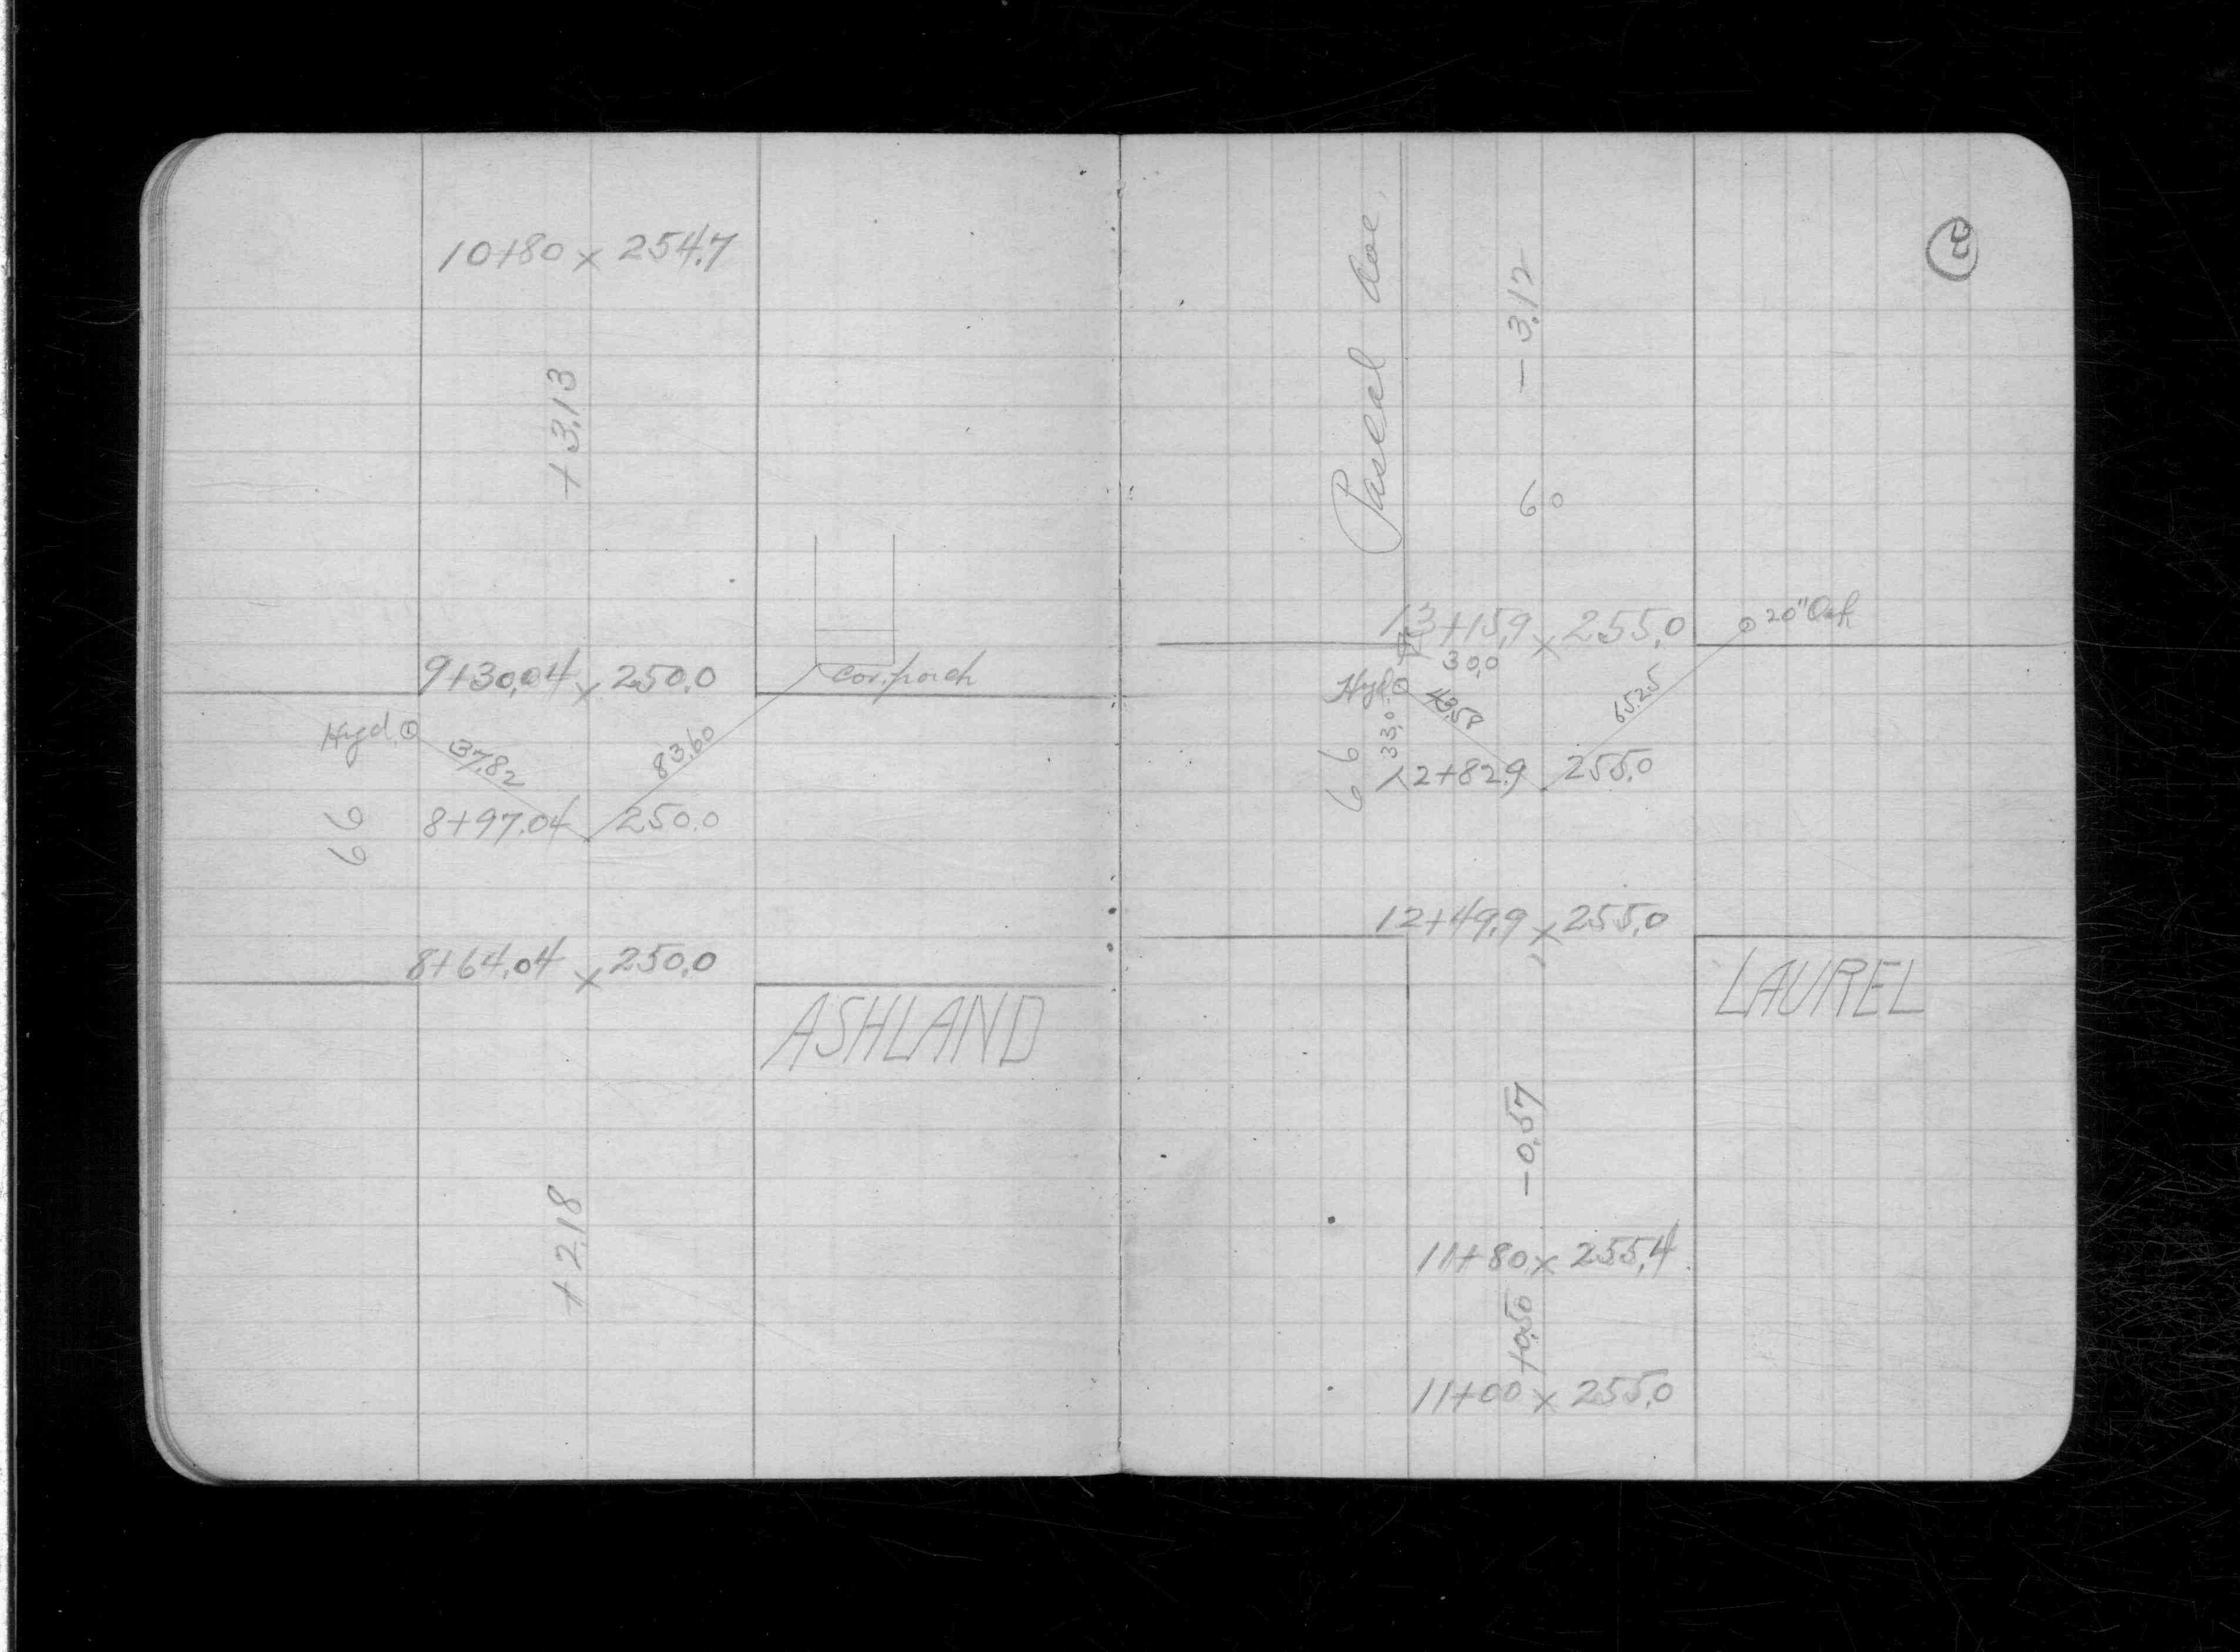 10+80 x 254.7
+3.13
9+30.04 x 250.0
cor. porch
Hyd.
37.82
83.60
8+97.04
250.0
66
8+64.04 x 250.0
ASHLAND
+2.18
Pascal Ave.
-3.12
60
13+15.9 x 255.0
20" Oak
30.0
Hyd.
43.58
65.25
33.0
66
12+82.9
255.0
12+49.9 x 255.0
LAUREL
-0.57
11+80 x 255.4
+0.50
11+00 x 255.0